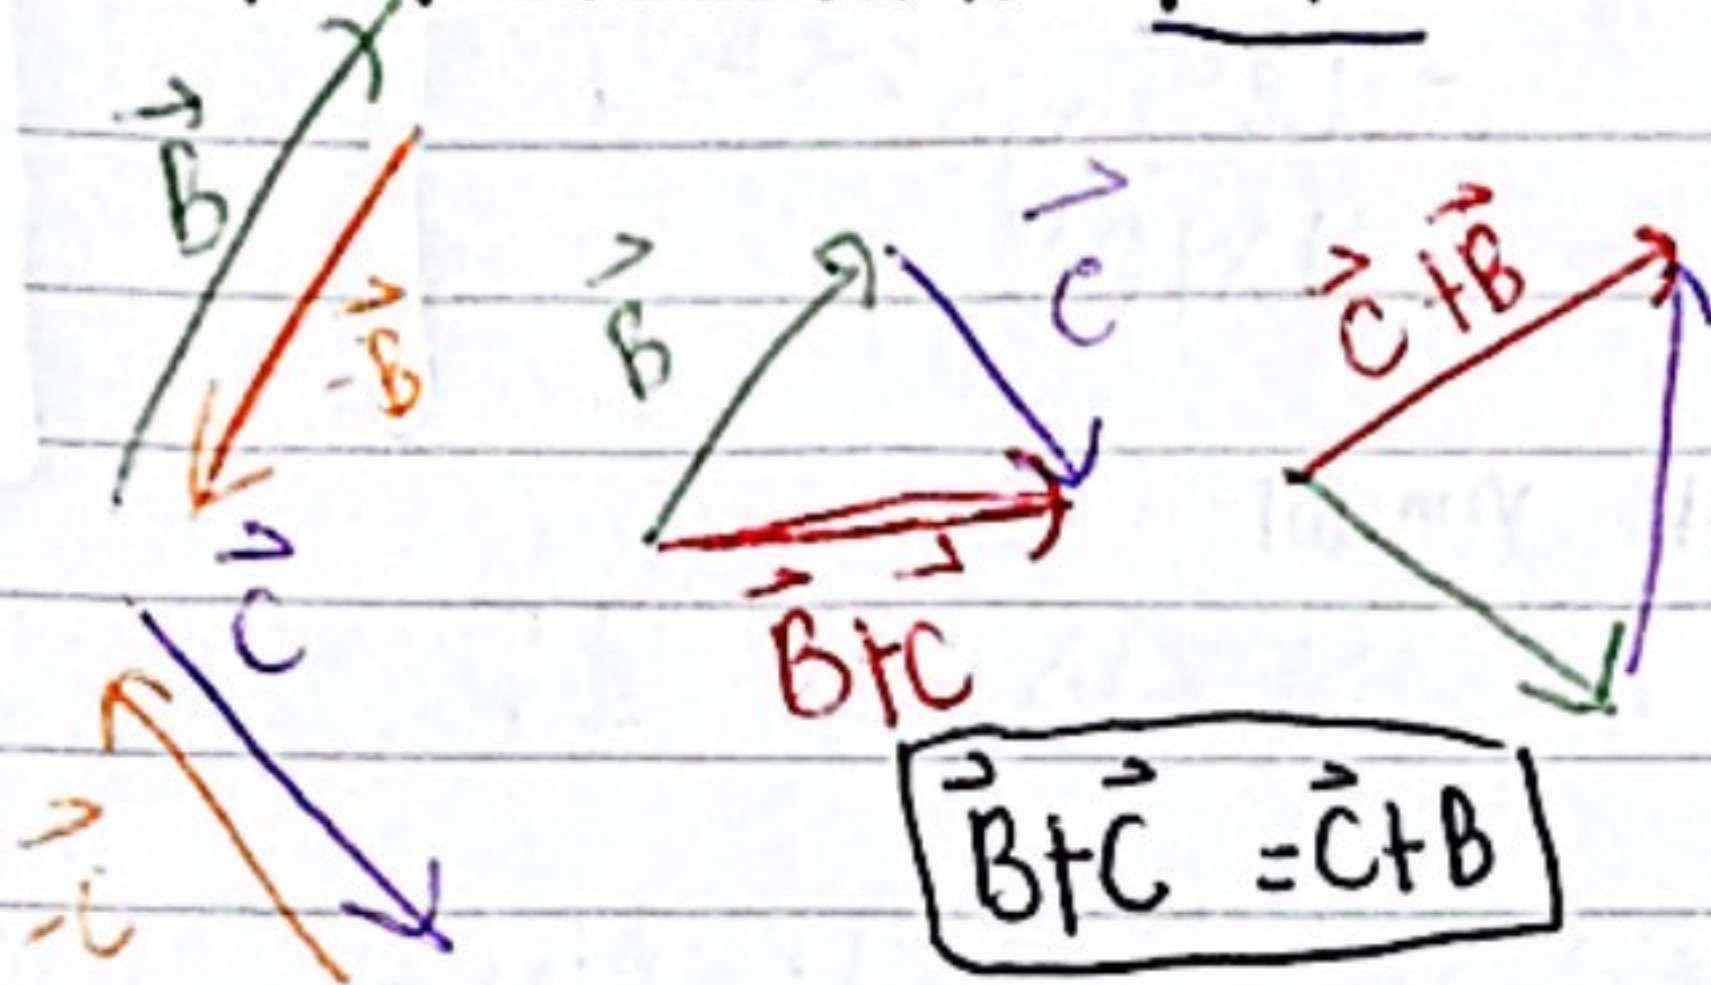 B⃗
-B⃗
C⃗
-C⃗
B⃗
C⃗
B⃗+C⃗
C⃗+B⃗
B⃗+C⃗ =C⃗+B